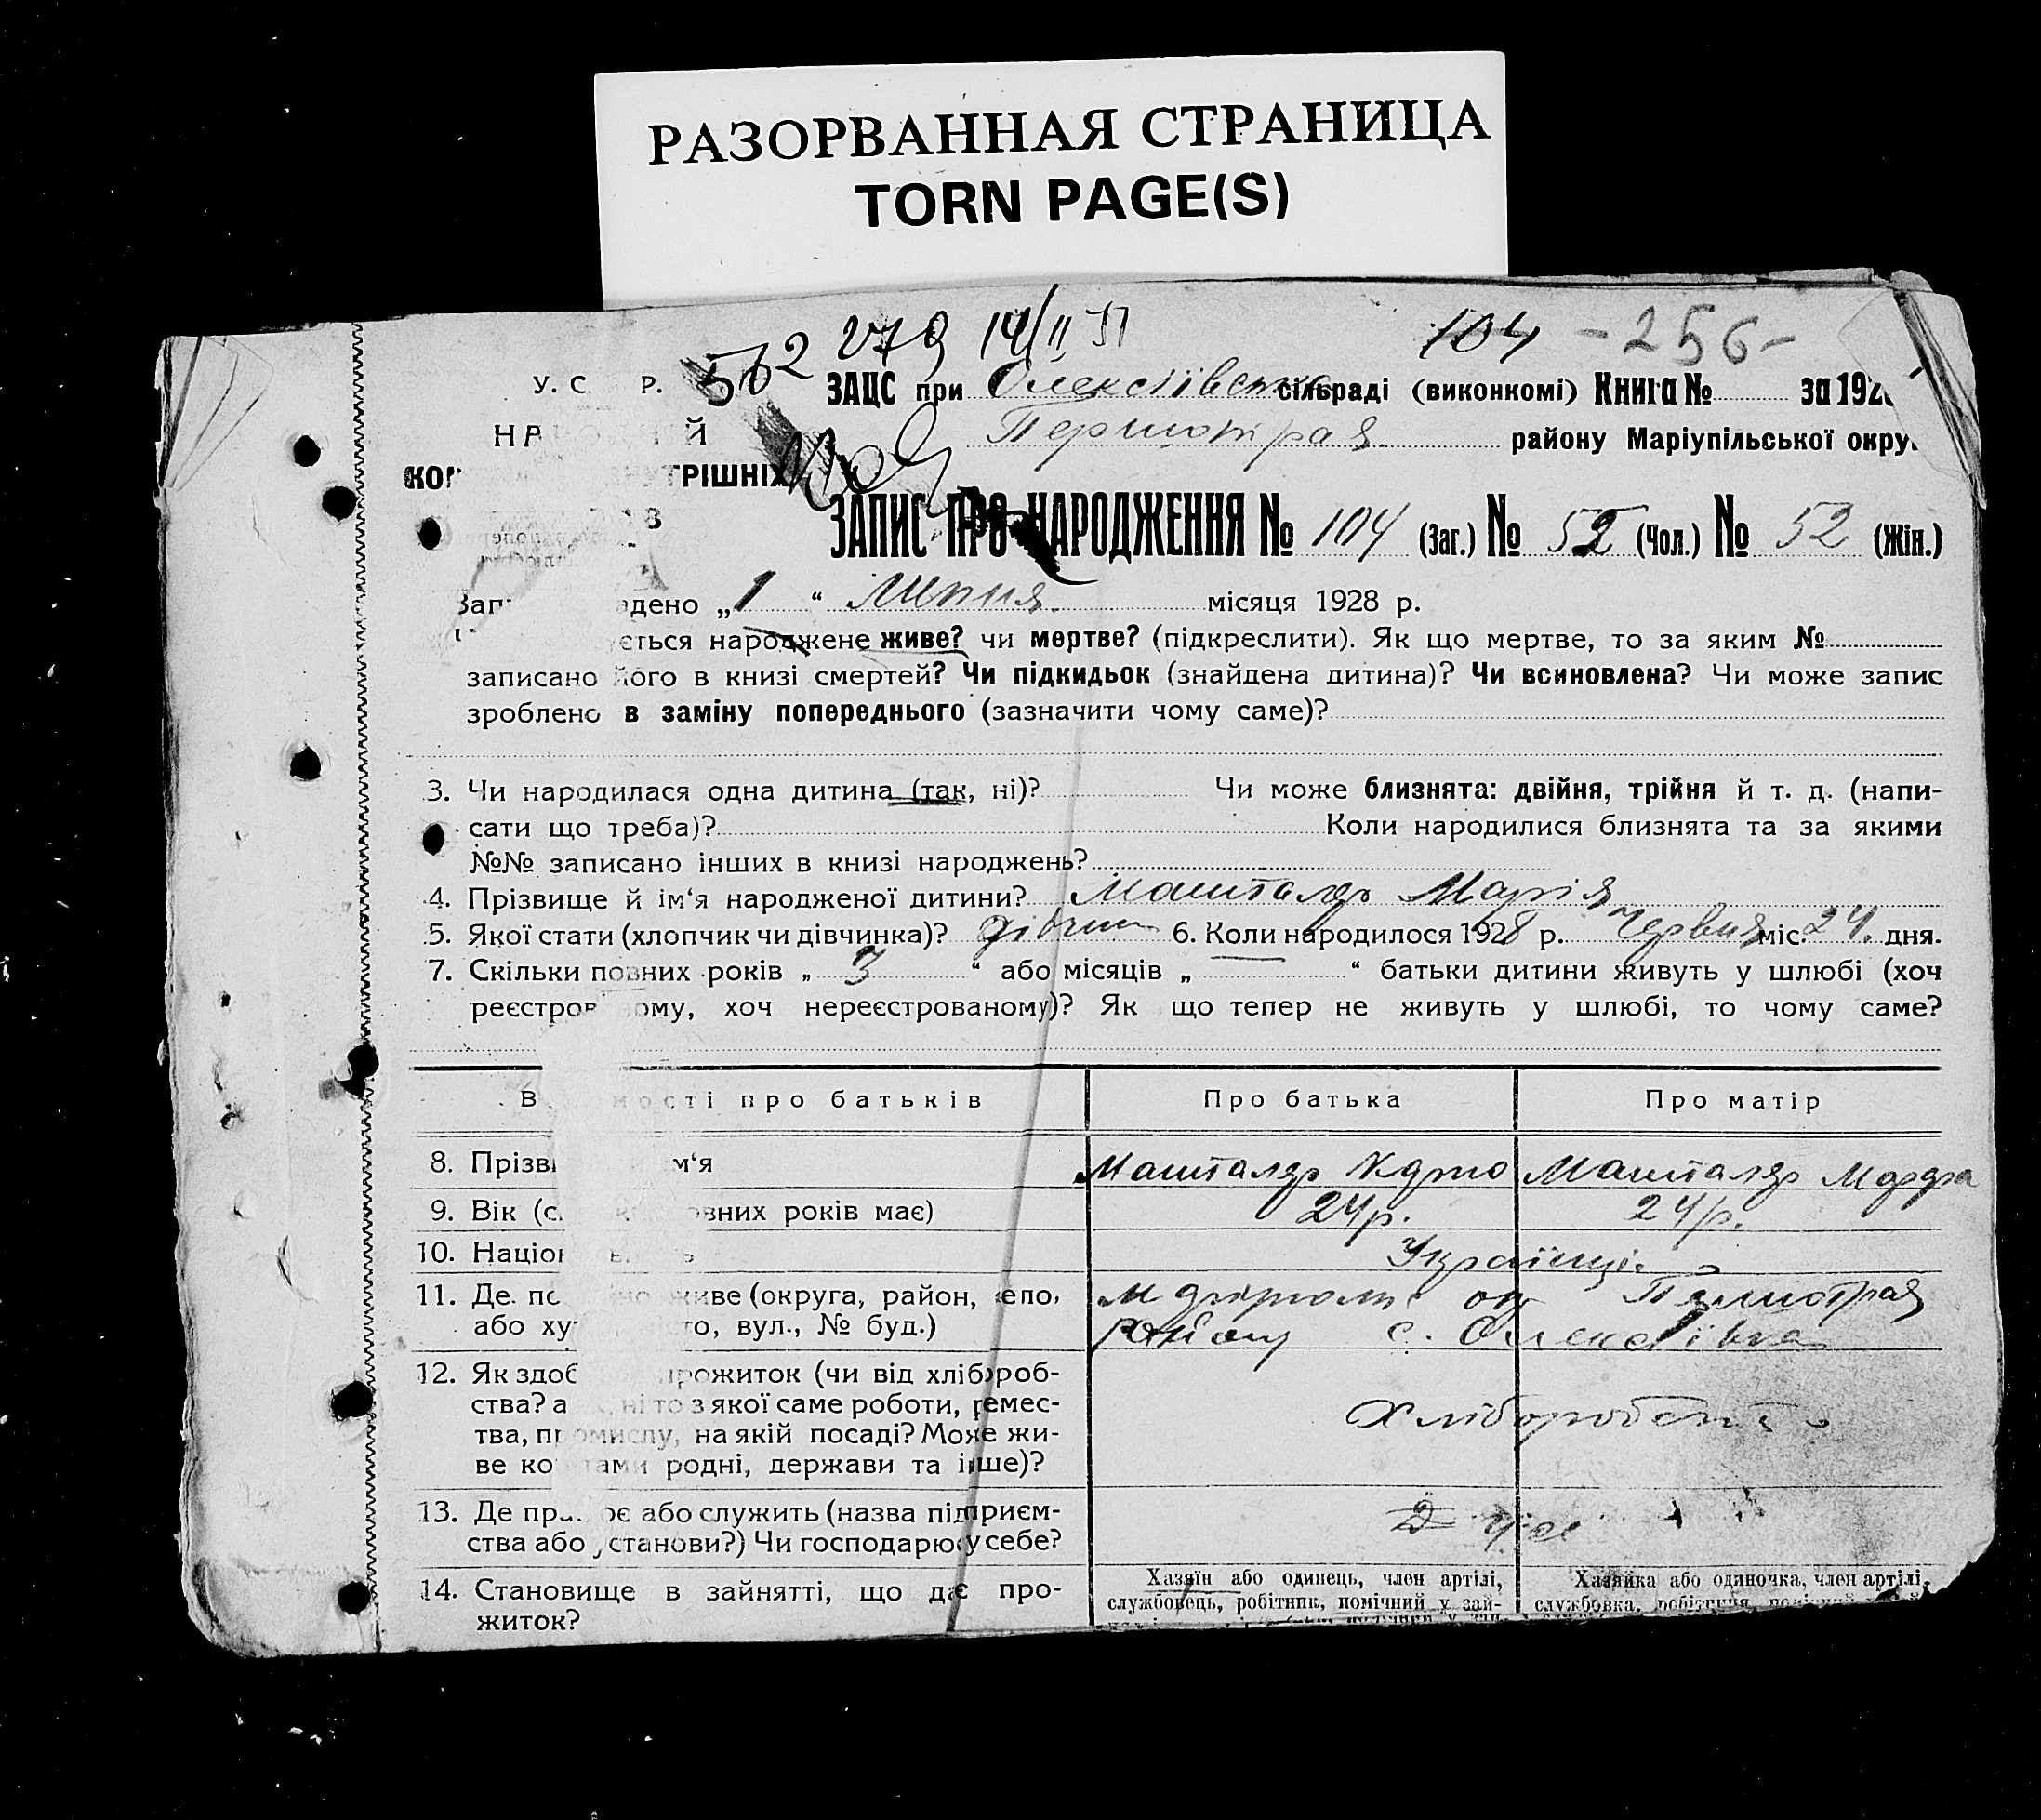 РАЗОРВАННАЯ СТРАНИЦА
TORN PAGE(S)
562 279 14/II 104 -256-
У. С Р. ЗАЦС при Олексіївська сільраді (виконкомі) Книга № за 192
Й Першотрав. району Маріупільської окру
КО ТРІШНІХ
ЗАПИС ПРО НАРОДЖЕННЯ № 104 (Заг.) № 52 (Чол.) № 52 (Жін.)
Зап дено „1“ Липня місяця 1928 р.
ється народжене живе? чи мертве? (підкреслити). Як що мертве, то за яким №
записано його в книзі смертей? Чи підкидьок (знайдена дитина)? Чи всиновлена? Чи може запис
зроблено в заміну попереднього (зазначити чому саме)?
3. Чи народилася одна дитина (так, ні)? Чи може близнята: двійня, трійня й т. д. (напи-
сати що треба)? Коли народилися близнята та за якими
№№ записано інших в книзі народжень?
4. Прізвище й ім‘я народженої дитини? Машталяр Марія
5. Якої стати (хлопчик чи дівчинка)? дівчин 6. Коли народилося 1928 р. Червня міс. 24. дня.
7. Скільки повних років „ 3 “ або місяців „ “ батьки дитини живуть у шлюбі (хоч
реєстров ому, хоч нереєстрованому)? Як що тепер не живуть у шлюбі, то чому саме?
В мості про батьків Про батька Про матір
8. Прізв м‘я Машталяр Машталяр
9. Вік (с овних років має) 24 р. 24 р.
10. Націон Українці
11. Де по живе (округа, район, село, ок Першотрав
або ху то, вул., № буд.) району с. Олексіївка
12. Як здоб прожиток (чи від хлібороб-
ства? а ні то з якої саме роботи, ремес-
тва, промислу, на якій посаді? Може жи-
ве коштами родні, держави та інше)?
Хлібороб
13. Де пра є або служить (назва підприєм-
ства або установи?) Чи господарює у себе?
14. Становище в зайнятті, що дає про-
житок?
Хазяїн або одинець, член артілі,
службовець, робітник, помічний у зай-
Хазяйка або одиночка, член артілі,
службовка, робітниця